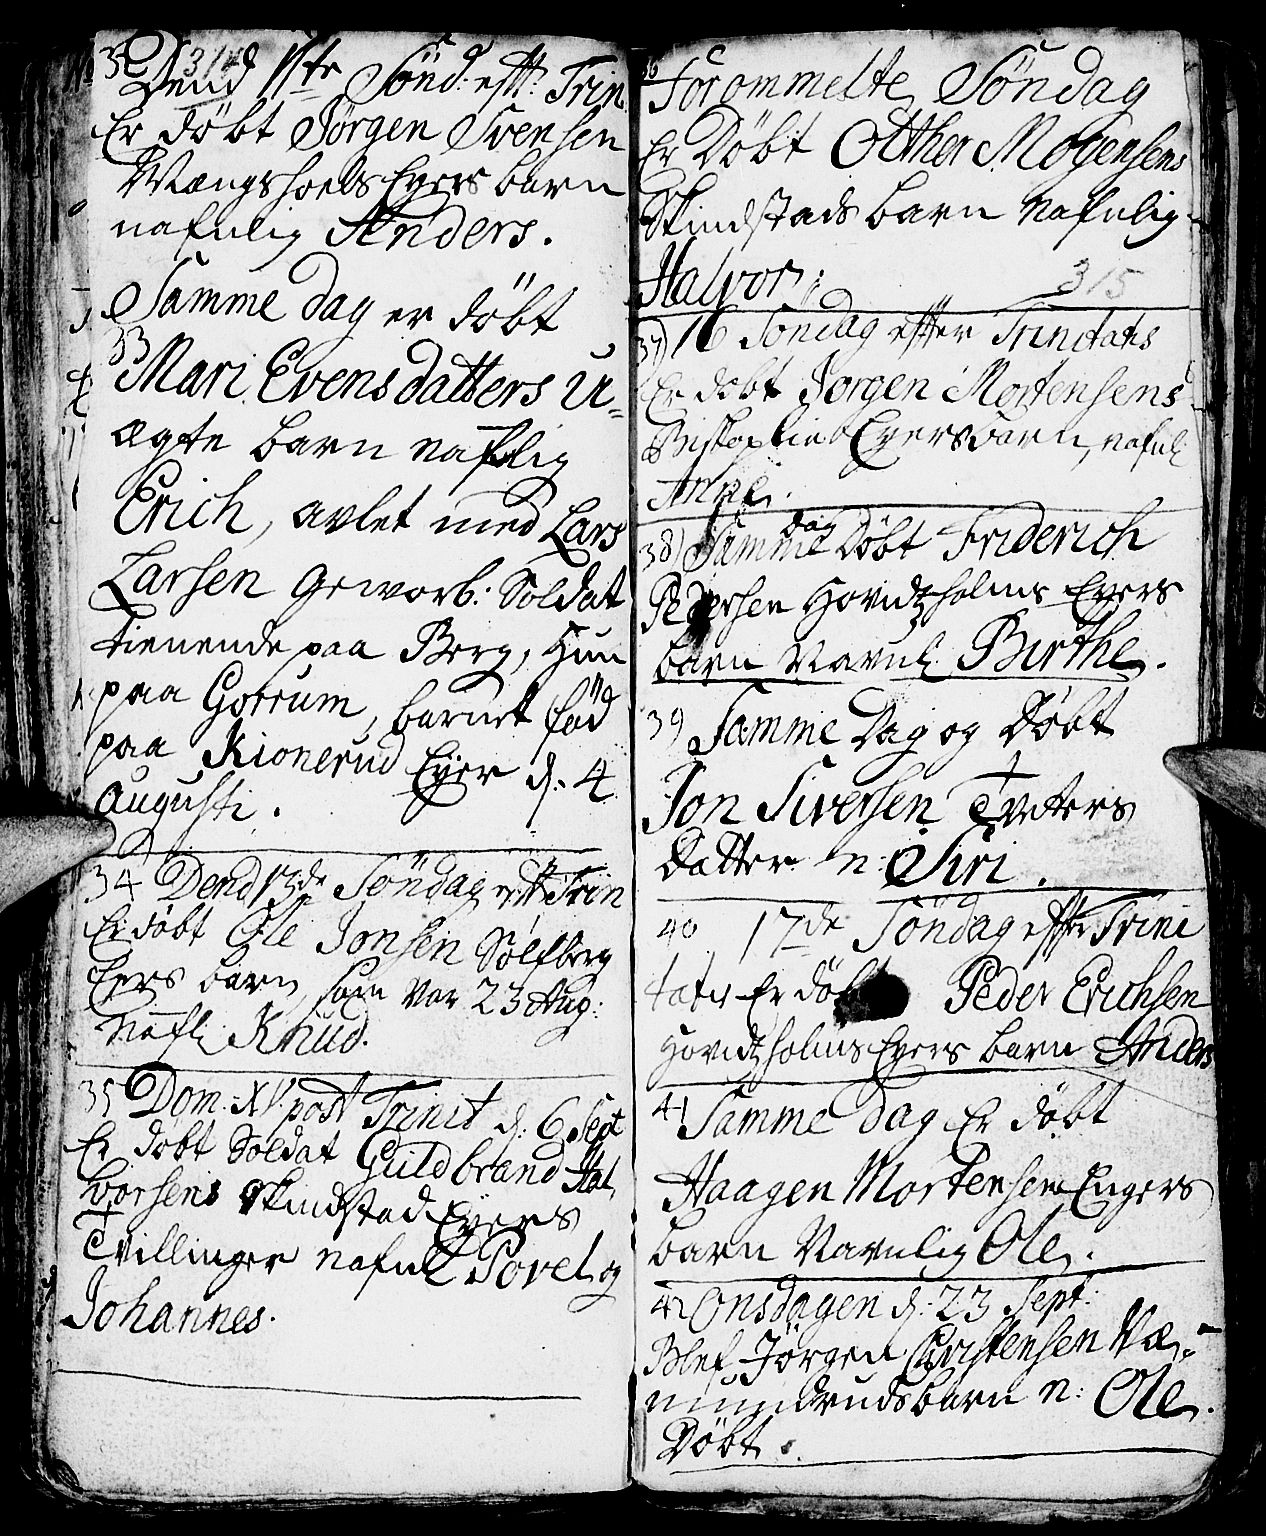 32
314
Dend 11te Sönd: eft: Trin
Er döbt Jörgen Svensen
Wængshoels Eyers barn
nafnlig Anders.
Samme dag er döbt
33
Mari Evensdatters U=
ægte barn nafnlig
Erich, avlet med Lars
Larsen Geworb: Soldat
tienende paa Berg, Hun
paa Gorrum, barnet föd
paa Kionerud Eyer d: 4
Augusti.
34 Dend 13de Söndag eft Trin
Er döbt Ole Jonsen Solfberg
Eyers barn, som var 23 Aug:
Nafl Knud.
35 Dom: XV post Trinit d: 6 Sept
Er döbt Soldat Guldbrand Hal,
vorsens Skindstad Eyers
Tvillinger nafnl Povel og
Johannes.
36
Forommelte Söndag
Er Döbt Otther Mogensens
Skindstads barn nafnlig
Halvor:
315
37) 16 Söndag efter Trinitatis
Er döbt Jorgen Mortensens
Bislaplie Eyers barn, nafnl
Anne.
38) Samme dag Döbt Friderich
Pedersen Hovidtzholms Eyers
barn Navnl Birthe.
39 Samme Dag og Döbt
Jon Siversen Tveters
Datter n: Siri.
40 17de Söndag efter Trini
tatis Er döbt Peder Erichsen
Hovidtzholms Eyers barn Anders
41 Samme dag Er döbt
Haagen Mortensen Engers
barn Navnlig Ole.
42 Onsdagen d: 23 Sept:
Blef Jörgen Christensen Væ=
mundruds barn n: Ole
Döbt.